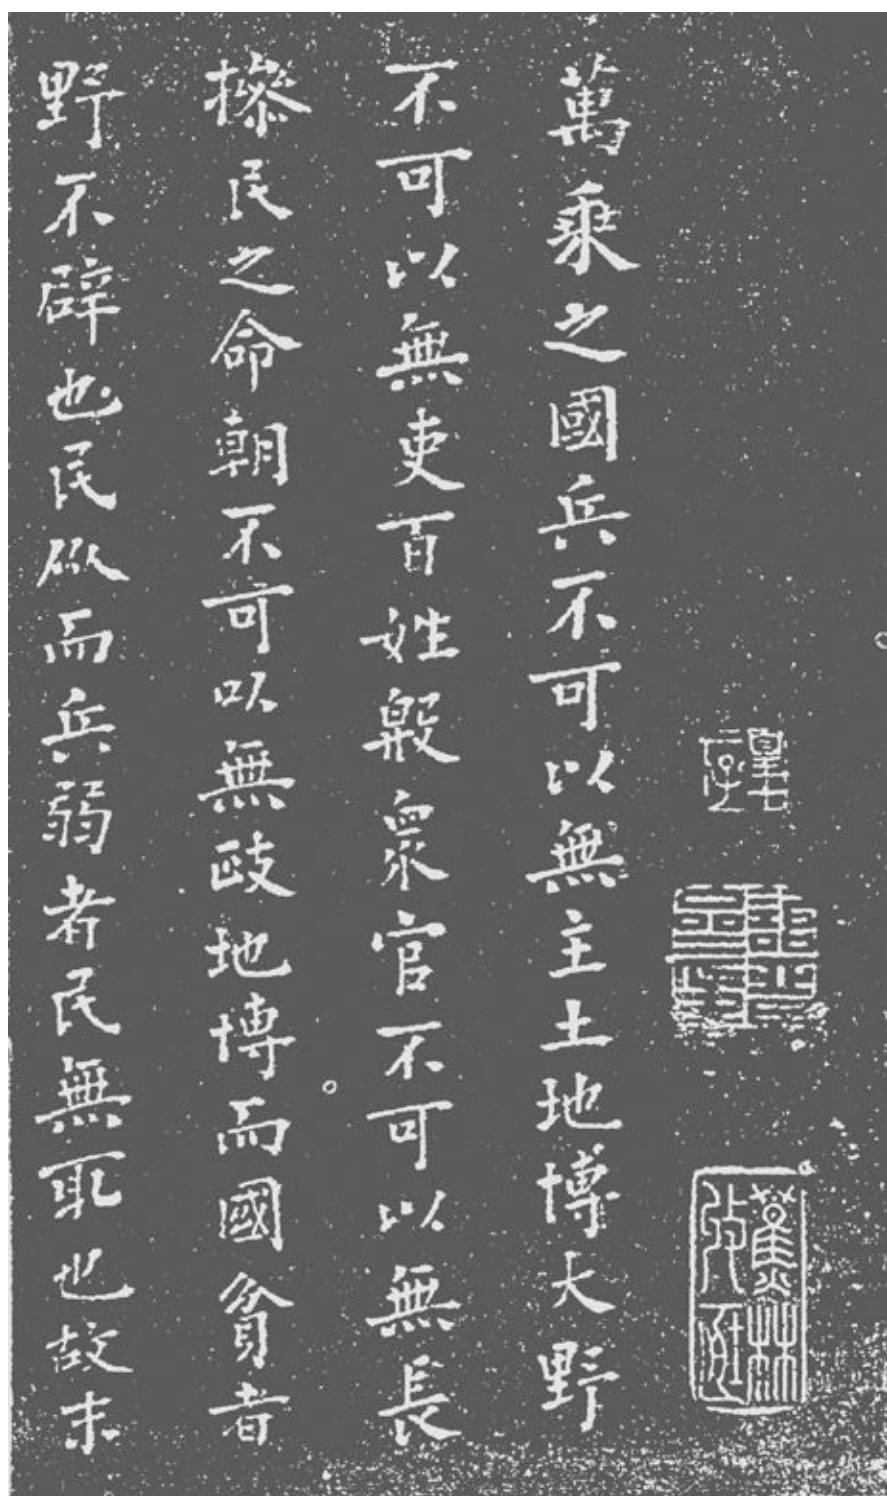 萬乘之國兵不可以無主土地博大野
不可以無吏百姓殷衆官不可以無長
操民之命朝不可以無政地博而國貧者
野不辟也民㐺而兵弱者民無取也故末